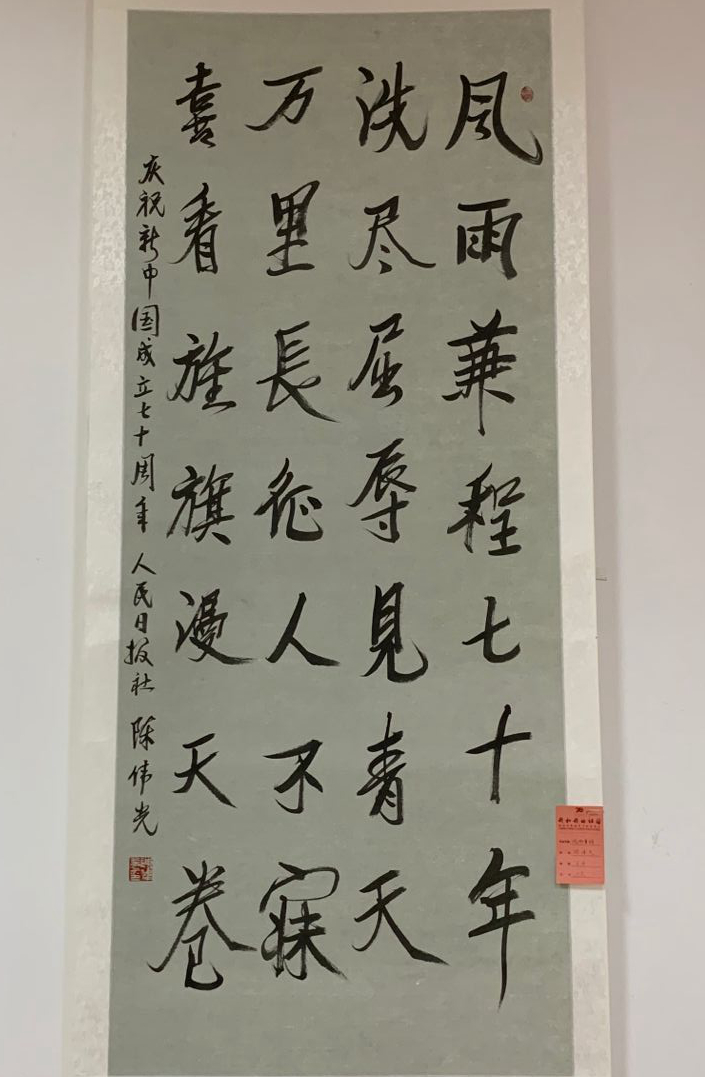 风雨兼程七十年
洗尽屈辱見青天
万里長征人不寐
喜看旌旗漫天卷
庆祝新中国成立七十周年 人民日报社 陈伟光